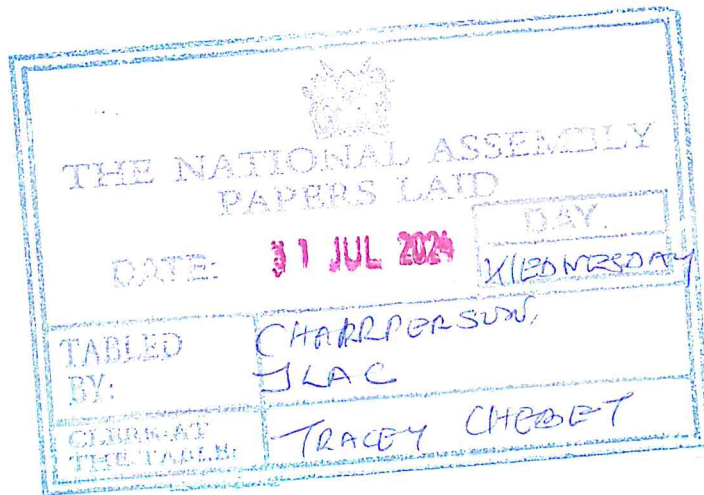 THE NATIONAL ASSEMBLY
PAPERS LAID
DATE: 31 JUL 2024
DAY
WEDNESDAY
TABLED BY:
CHAIRPERSON,
JLAC
CLERK-AT THE-TABLE:
TRACEY CHEBET